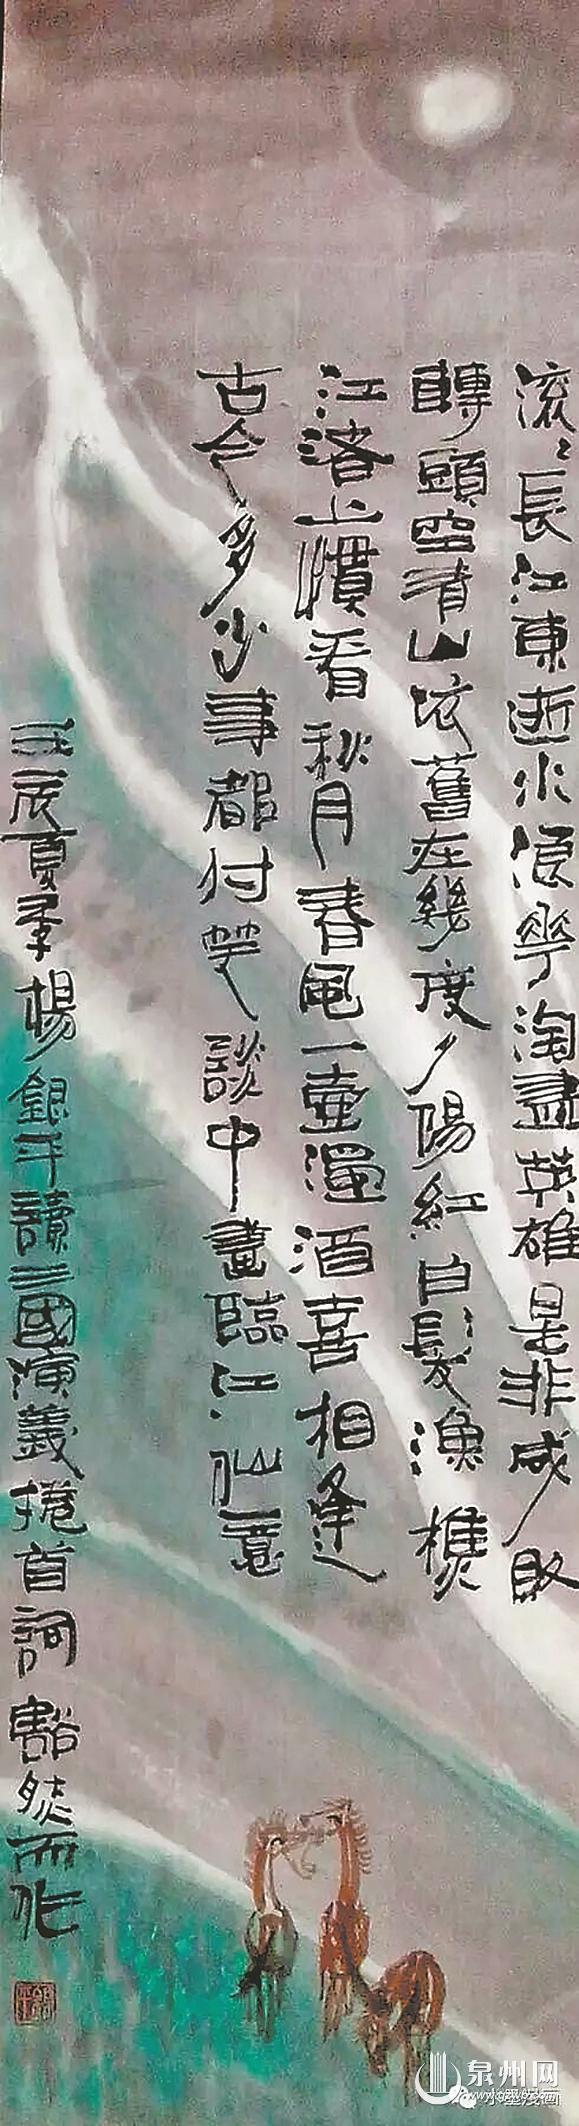 滚〻長江東逝水浪華淘盡英雄是非成敗
轉頭空青山依舊在幾度夕陽紅白髮漁樵
江渚上慣看秋月春風一壺濁酒喜相逢
古今多少事都付笑談中畫臨江仙意
壬辰夏季楊銀平讀三國演義捲首詞豁然而作
泉州网